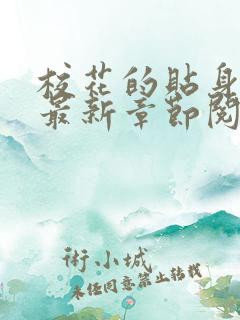 校花的貼身
最新章節閱
術小城
未经同意禁止转载